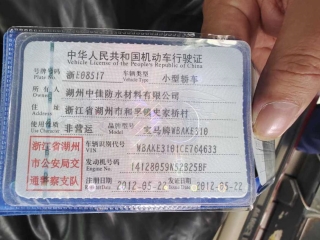 中华人民共和国机动车行驶证
Vehicle License of the People's Republic of China
号牌号码 浙E08S17 车辆类型 小型轿车
Plate No. Vehicle Type
所有人 湖州中佳防水材料有限公司
Owner
住址 浙江省湖州市和孚镇史家桥村
Address
使用性质 非营运 品牌型号 宝马牌WBAKE310
Use Character Model
浙江省湖州市公安局交通警察支队
车辆识别代号
VIN
发动机号码
Engine No.
注册日期 2012-05-22 发证日期 2012-05-22